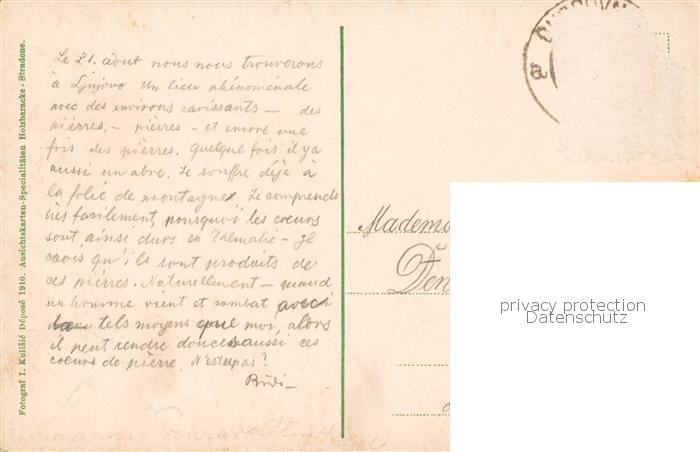 Le 21. aôut nous nous trouverons
à Gjujovo. Un lieu phénoménale
avec des environs ravissants — des
pièrres, — pièrres — et encore une
fois des pièrres. Quelque fois il y a
aussi un abre. Je souffre déjà à
la folie de montagne. Je comprends
très facilement, pourquoi les coeurs
sont ainsi durs en Dalmatie — Je
crois qu'ils sont produits de
ces pièrres. Naturellement — quand
un homme vient et combat avec
tels moyens que moi, alors
il peut rendre douces aussi ces
coeurs de pierre. N'est pas?
Bridi —
Fotograf I. Kulišić Déposé 1910. Ansichtskarten-Specialitäten Holzbaracke - Stradone.
Madem
privacy protection
Datenschutz